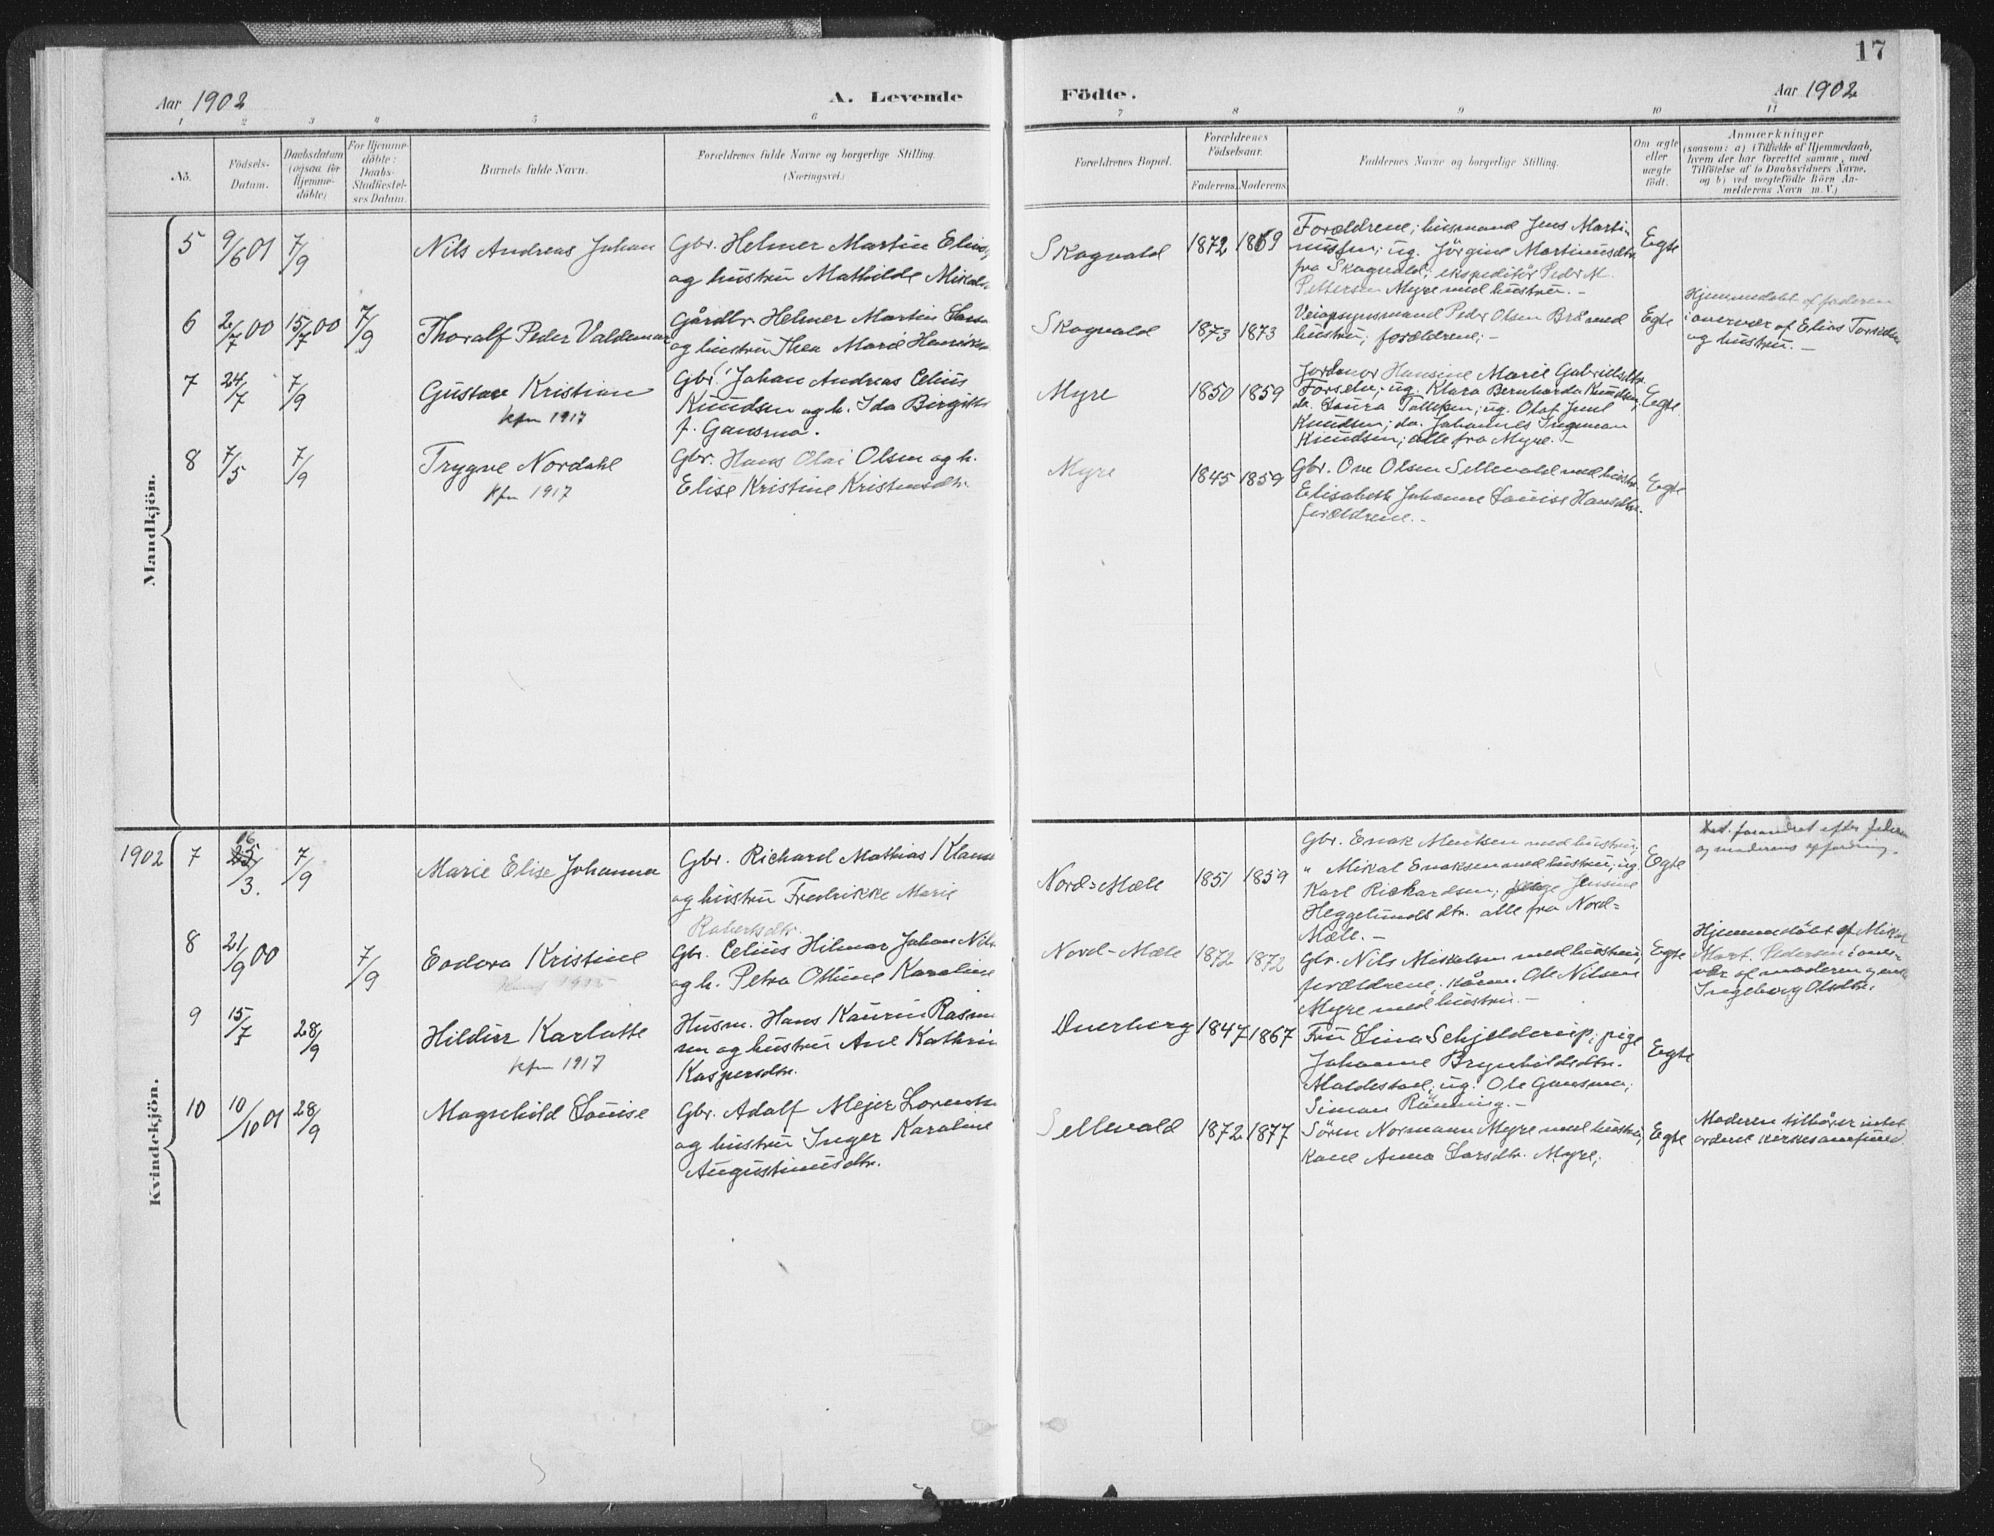 17
Aar 1902
A. Levende
Födte.
Aar 1902
1 2 3 4 5 6 7 8 9 10 11
No.
Födsels-
Datum.
Daabsdatum
(ogsaa for
Hjemme-
döbte)
For Hjemme-
döbte:
Daabs-
Stadfæstel-
ses Datum.
Barnets fulde Navn.
Forældrenes fulde Navne og borgerlige Stilling.
(Næringsvei.)
Forældrenes Bopæl.
Forældrenes
Födselsaar.
Faderens. Moderens.
Faddernes Navne og borgerlige Stilling.
Om ægte
eller
uægte
födt.
Anmærkninger
(saasom: a) i Tilfælde af Hjemmedaab,
hvem der har forrettet samme, med
Tilföielse af to Daabsvidners Navne,
og b) ved uægtefödte Börn An-
melderens Navn m. V.)
Mandkjön.
5 9/6 01 7/9
Nils Andreas Johan
Gbr. Helmer Martin Elias
og hustru Mathilde Mikals
Skogvold
1872 1869
Forældrene; husmand Jens Marti-
nussen; ug. Jörgine Martinusdtr.
fra Skogvold; ekspeditör Peder M.
Pettersen Myre med hustru. -
Egte
6 2/7 00 15/7 00 7/9
Thoralf Peder Valdemar
Gårdbr. Helmer Martin
og hustru Thea Marie Henriks
Skogvold
1873 1873
Veiopsynsmand Peder Olsen Brå med
hustru; forældrene; -
Egte
Hjemmedöbt af faderen
i overvær af Elias
og hustru. -
7 24/7 7/9
Gustav Kristian
kfm 1917
Gbr. Johan Andreas Celius
Knudsen og h. Ida Birgitte
f. Gansmo.
Myre
1850 1859
Jordmor Hansine Marie Gabrielsdtr.
Forselv; ug. Klara Bernharda Knudsen,
do. Laura; ug. Olaf Juul
Knudsen; do. Johannes Ingeman
Knudsen; alle fra Myre. -
Egte
8 7/5 7/9
Trygve Nordahl
kfm 1917
Gbr. Hans Olai Olsen og h.
Elise Kristine Kristensdtr.
Myre
1845 1859
Gbr. Ove Olsen Sellevold med hustru
Elisabeth Johanne Louise Hansdtr.
forældrene. -
Egte
Kvindekjön.
1902 7 26/3. 7/9
Marie Elise Johanna
Gbr. Richard Mathias Klaus
og hustru Fredrikke Marie
Robertsdtr.
Nord-Mæle
1851 1859
Gbr. Enok Mentsen med hustru,
" Mikal Enoksen med hustru; ug.
Karl Richardsen; Jensine
Heggelunds dtr. alle fra Nord-
Mæle. -
Egte
Dat. forandret efter faderens
og moderens opfordring.
8 21/9 00 7/9
Eodora Kristine
Gbr. Celius Hilmar Johan Nils
og h. Petra Ottine Karoline
Nord-Mæle
1872 1872
Gbr. Nils Mikalsen med hustru,
forældrene; Ole Nilsen
Myre med hustru. -
Egte
Hjemmedöbt af Mikal
Mart. Pedersen i over-
vær af moderen og
Ingeborg Olsdtr.
9 15/7 28/9
Hildur Karlotte
kfm 1917
Husm. Hans Kaurin Rasm
sen og hustru Ane Kathrin
Kaspersdtr.
Duerberg
1847 1867
Fru Lina Schjelderup; pige
Johanne Brynhildsdtr.
; ug. Ole Gansmo;
Simon Rönning. -
Egte
10 10/10 01 28/9
Magnhild Louise
Gbr. Adolf Mejer Lorents
og hustru Inger Karoline
Augustinusdtr.
Sellevold
1872 1877
Sören Normann Myre med hustru,
Kone Anna Larsdtr. Myre;
Egte
Moderen tilhörer intet
ordent. kirkesamfund